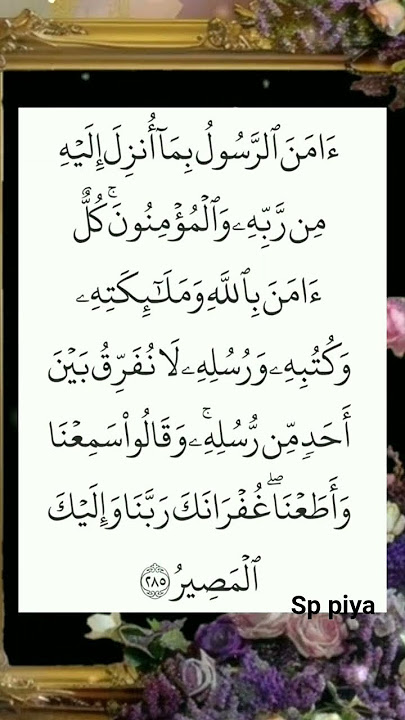 ءَامَنَ ٱلرَّسُولُ بِمَآ أُنزِلَ إِلَيْهِ
مِن رَّبِّهِۦ وَٱلْمُؤْمِنُونَ ۚ كُلٌّ
ءَامَنَ بِٱللَّهِ وَمَلَـٰٓئِكَتِهِۦ
وَكُتُبِهِۦ وَرُسُلِهِۦ لَا نُفَرِّقُ بَيْنَ
أَحَدٍ مِّن رُّسُلِهِۦ ۚ وَقَالُوا۟ سَمِعْنَا
وَأَطَعْنَا ۖ غُفْرَانَكَ رَبَّنَا وَإِلَيْكَ
ٱلْمَصِيرُ ٢٨٥
Sp piya